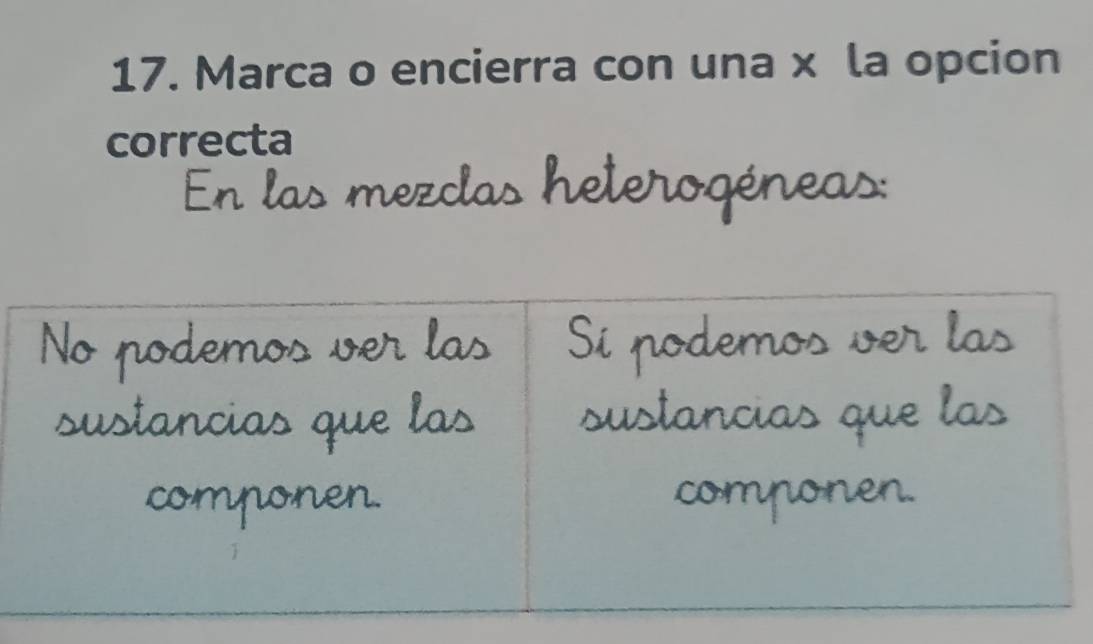 17. Marca o encierra con una x la opcion
correcta
En las mezclas heterogéneas:
No podemos ver las
sustancias que las
componen.
Sí podemos ver las
sustancias que las
componen.